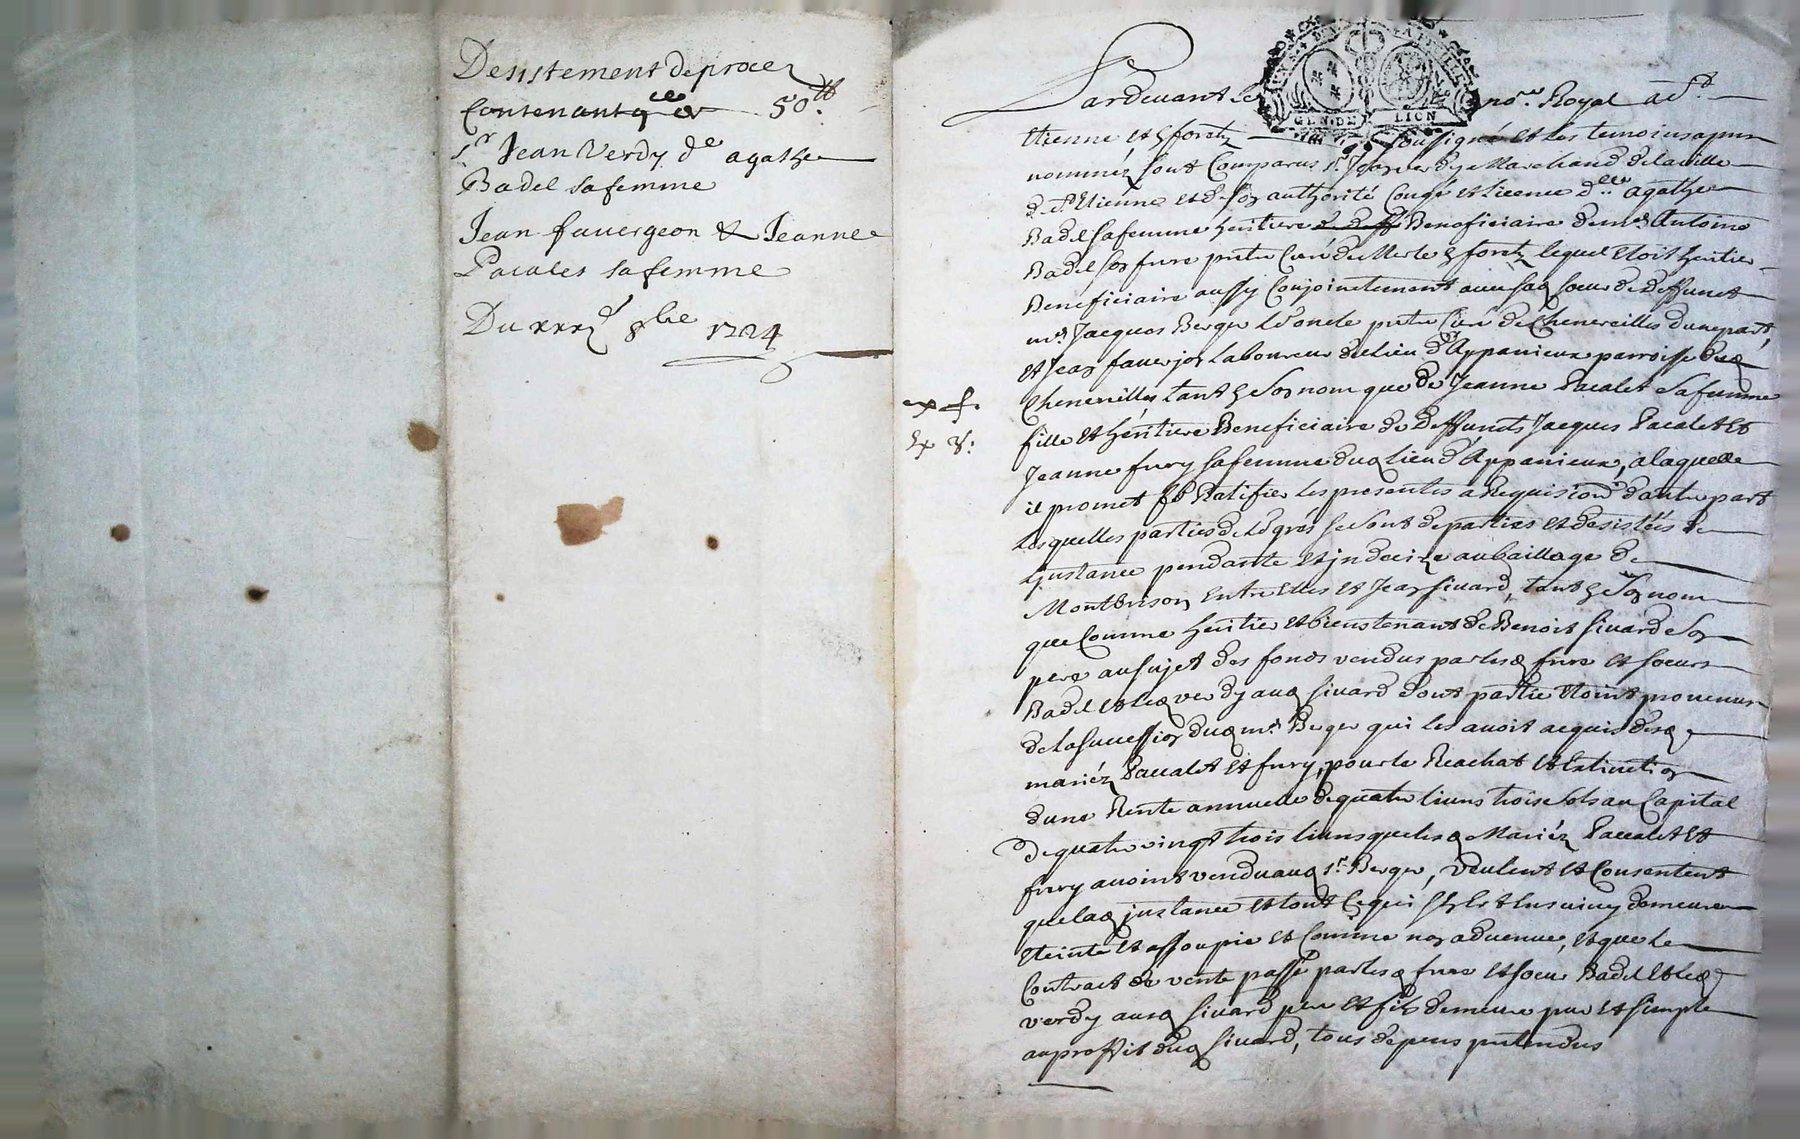 Desistement de procez
Contenant qce 50ᵗᵗ
Sr Jean Verdy de agathe
Badel sa femme
Jean fauergeon & Jeanne
Pacales sa femme
Du xxx 8bre 1724
GEN. DE LION
Pardevant le nore Royal a St
Etienne et forest soussigné et les temoins apres
nomméz sont Comparus sr Jean verdy Marchand de la ville
de St Etienne et de son authorité Congé et licence dlle agathe
Badel sa femme heritiere Beneficiaire de mre Antoine
Badel son frere pretre Curé du Merle forest lequel etoit heritier
Beneficiaire aussy Conjoinctement avec sa soeur de deffunct
mre Jacques Berger leur oncle pretre Curé de Chenereilles d'une part,
et Jean faverjon laboureur du lieu d'Appanieux parroisse dud
Chenereilles tant son nom que de Jeanne Pacalet sa femme
ex f.
fille et heritiere Beneficiaire de deffunts Jacques Pacalet et
Ex 8:
Jeanne fury sa femme dud lieu d'Appanieux, a laquelle
il promet Ratifier les presentes a Requision d'autre part
Lesquelles parties de gré se sont departies et desistées de
Jnstance pendante et jndecise au bailliage de
Montbrison entre elles et Jean sivard, tant son nom
que Comme heritier et bienstenant de Benoit sivard son
pere au sujet des fonds vendus par lesd frere et soeurs
Badel et led verdy aud sivard dont partie etoint provenus
de la succession dud mre Berger qui les avoit acquis desd
mariéz Pacalet et fury, pour le Reachat et Extinction
d'une Rente annuelle de quatre livres trois sols au Capital
de quatre vingt trois livres que lesd Mariéz Pacalet et
fury avoint vendu aud sr Berger, veulent et Consentent
que lad jnstance et tout ce qui s'en est ensuivy demeure
eteinte et assoupie et Comme non advenue, et que le
Contract de vente passé par lesd frere et soeur Badel et led
verdy aud sivard pere et fils demeure pur et simple
au proffit dud sivard, tous depens pretendus